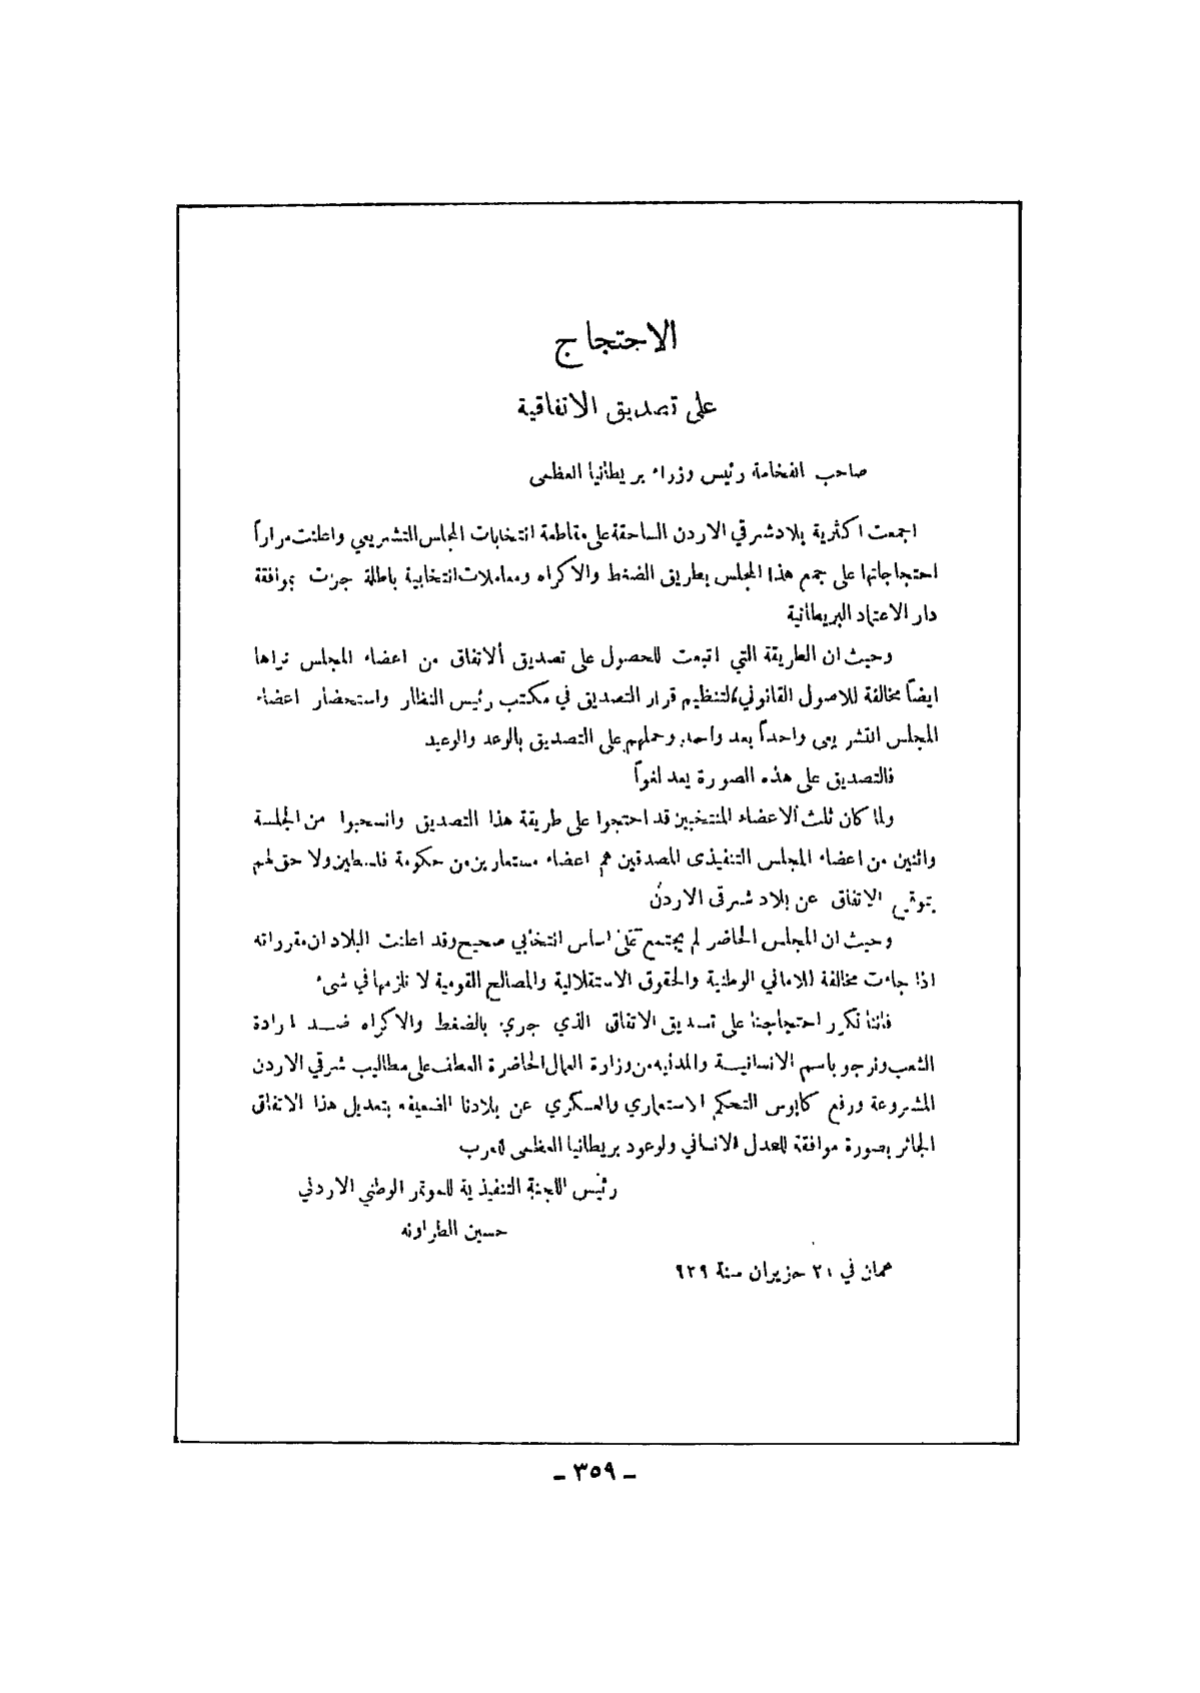 الاحتجاج
على تصديق الاتفاقية
صاحب الفخامة رئيس وزراء بريطانيا العظمى
اجمعت اكثرية بلاد شرقي الاردن الساحقة على مقاطعة انتخابات المجلس التشريعي واعلنت مراراً
احتجاجاتها على جمع هذا المجلس بطريق الضغط والاكراه ومعاملات انتخابية باطلة جرت بموافقة
دار الاعتماد البريطانية
وحيث ان الطريقة التي اتبعت للحصول على تصديق ألاتفاق من اعضاء المجلس نراها
ايضاً مخالفة للاصول القانوني لتنظيم قرار التصديق في مكتب رئيس النظار واستحضار اعضاء
المجلس التشريعي واحداً بعد واحد وحملهم على التصديق بالوعد والوعيد
فالتصديق على هذه الصورة يعد لغواً
ولما كان ثلث ألاعضاء المنتخبين قد احتجوا على طريقة هذا التصديق وانسحبوا من الجلسة
واثنين من اعضاء المجلس التنفيذى المصدقين هم اعضاء مستعارين من حكومة فلسطين ولا حق لهم
بتوقيع الاتفاق عن بلاد شرقى الاردن
وحيث ان المجلس الحاضر لم يجتمع على اساس انتخابي صحيح وقد اعلنت البلاد ان مقرراته
اذا جاءت مخالفة للاماني الوطنية والحقوق الاستقلالية والمصالح القومية لا تلزمها في شىء
فاننا نكرر احتجاجنا على تصديق الاتفاق الذي جرى بالضغط والاكراه ضد ارادة
الشعب ونرجو باسم الانسانية والمدنيه من وزارة العمال الحاضرة العطف على مطاليب شرقي الاردن
المشروعة ورفع كابوس التحكم الاستعماري والعسكري عن بلادنا الضعيفه بتعديل هذا الاتفاق
الجائر بصورة موافقة للعدل الانساني ولوعود بريطانيا العظمى للعرب
رئيس اللجنة التنفيذية للموتمر الوطني الاردني
حسين الطراونه
عمان في ٢٠ حزيران سنة ٩٢٩
ـ ٣٥٩ ـ